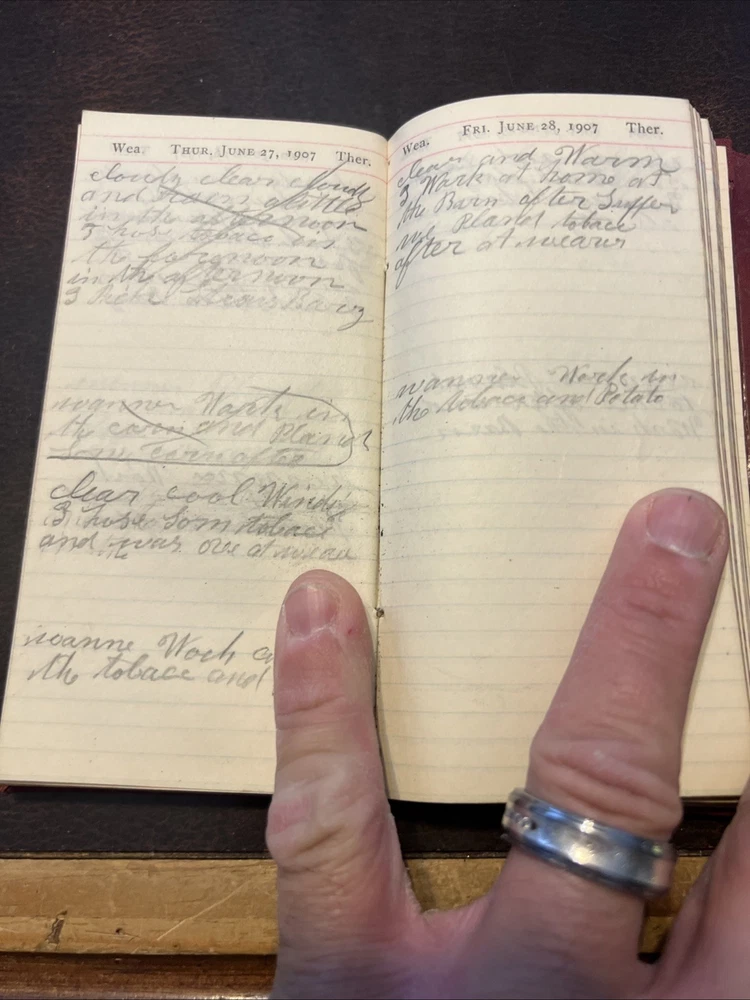 Wea. THUR. JUNE 27, 1907 Ther.
cloudy clear cloudy
and rain a little
in the afternoon
I hose tobace in
the forenoon
in the afternoon
I
wanner Work in
the corn and Planet
som corn after
clear cool Windy
I hose som tobace
and was ove at
wanne Work
the tobace and
Wea. FRI. JUNE 28, 1907 Ther.
clear and Warm
I Work at home at
the Barn after Suffer
we Planet tobace
after at wears
wanner Work in
the tobace and Potato